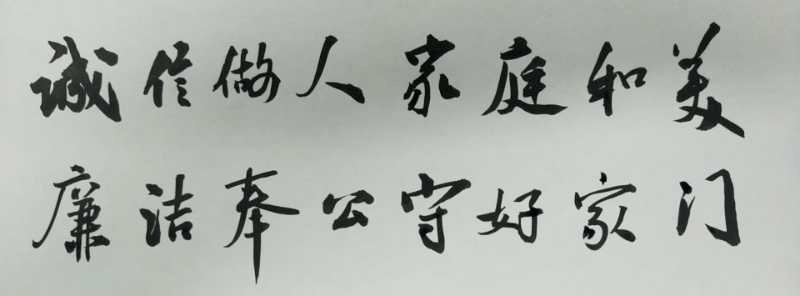 诚信做人家庭和美
廉洁奉公守好家门